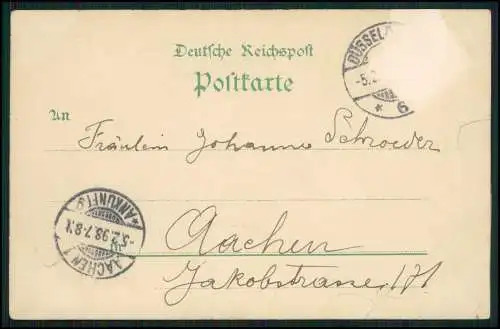 Deutsche Reichspost
Postkarte
DÜSSEL
-5.2
* 6
An
Fräulein Johanna Schroeder
* ANKUNFT *
-5.2.98.7-8.N.
AACHEN 1
Aachen
Jakobstrasse 171